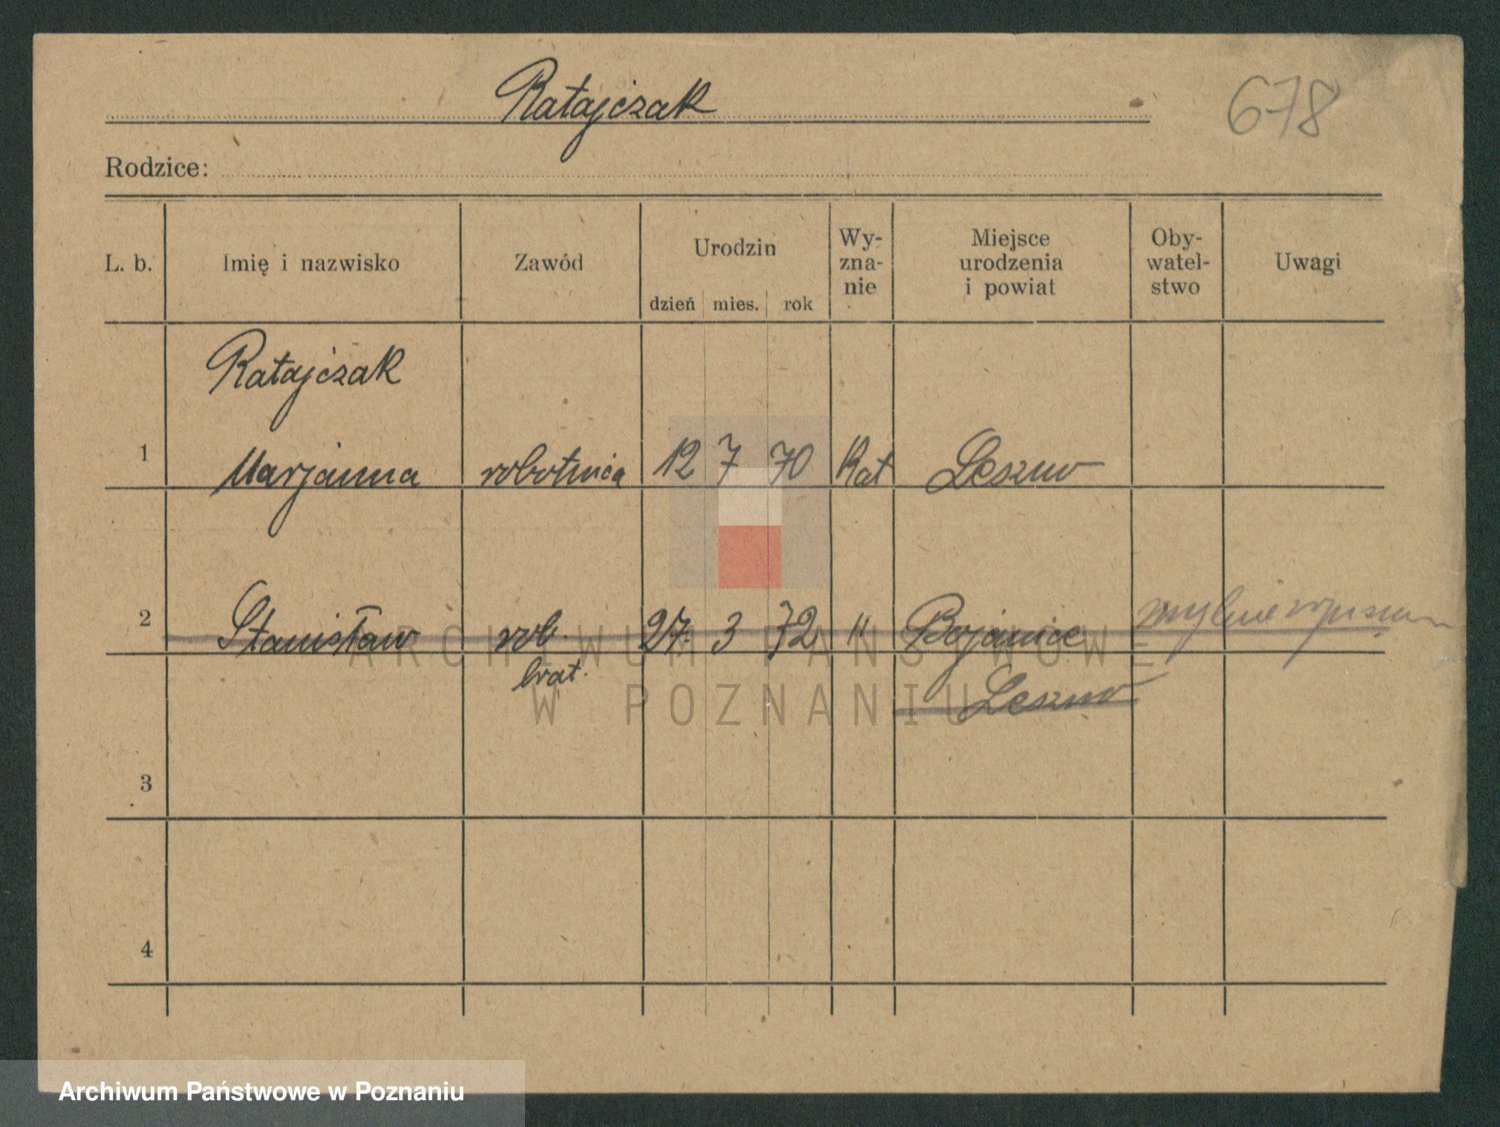 Ratajczak
678
Rodzice:
L. b. Imię i nazwisko Zawód Urodzin dzień mies. rok Wy-zna-nie Miejsce urodzenia i powiat Oby-watel-stwo Uwagi
Ratajczak
1 Marjanna robotnica 12 7 70 Kat Leszno
2 Stanisław rob. 27. 3 72 " Bojanice mylnie wpisany
brat. Leszno
3
4
ARCHIWUM PAŃSTWOWE
W POZNANIU
Archiwum Państwowe w Poznaniu